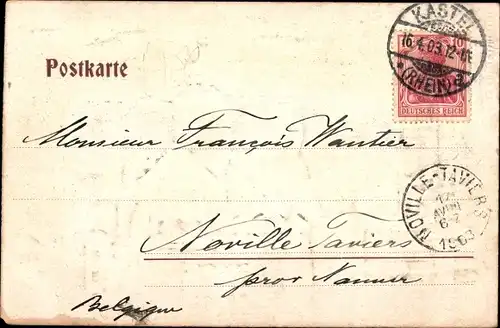 KASTEL
16.4.03.12-1N.
(RHEIN)
10
DEUTSCHES REICH
Postkarte
Monsieur François Wautier
NOVILLE-TAVIERS
17
AVRI
6-7
1903
Noville Taviers
prov Namur
Belgique